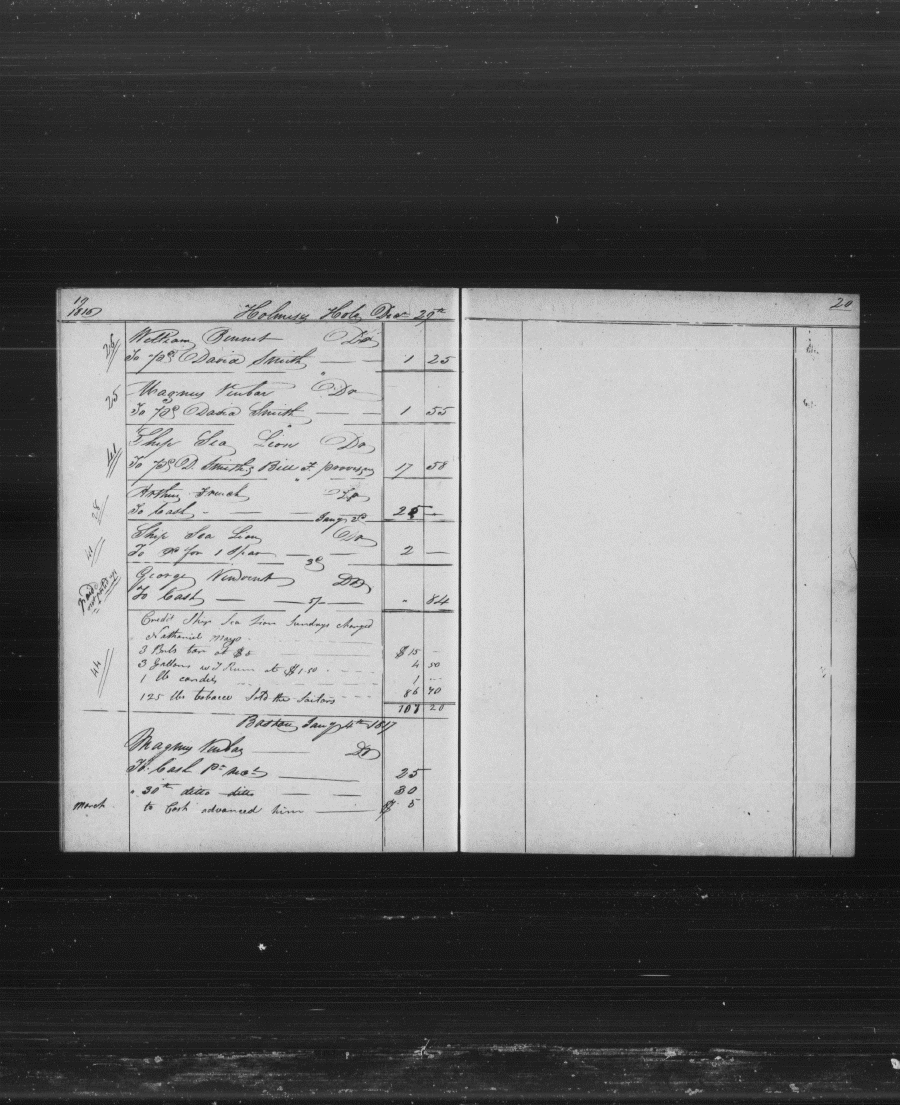 19
1816 Holmess Hole Decr 29th
20
26 William Bennet Dr
To pd David Smith 1 25
25 Magnus Vinbar Dr
To pd David Smith 1 55
41 Ship Sea Lion Dr
To pd D. Smiths Bill 17 58
28 Arthur French Dr
To Cash 25
Jany 2d
41 Ship Sea Lion Dr
To for 1 Spar 2 —
3d
George Dr
To Cash 5/ - 84
Credit Ship Sea Lion Sundrys charged
Nathaniel Mayo
3 Bbls tar at $5 $15 —
44 3 Gallons W I Rum at $1.50 4 50
1 lb candles 1 —
125 lbs tobacco Sold the Sailors 86 70
107 20
Boston Jany 4th 1817
Magnus Vinbar Dr
To Cash 25
" 30th ditto ditto 30
March to Cash advanced him $ 5